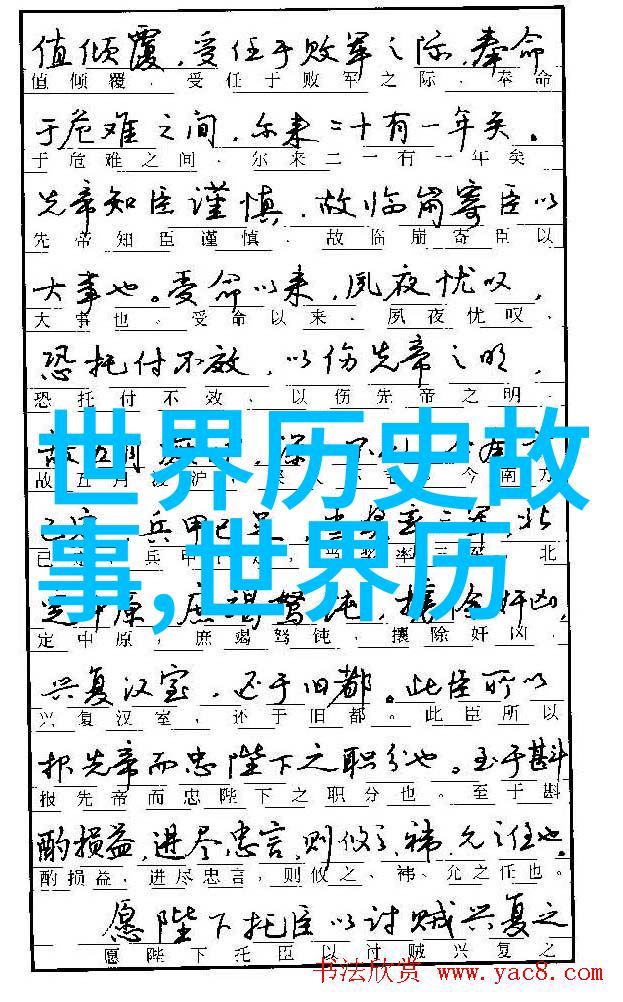 值倾覆，受任于败军之际，奉命
值倾覆，受任于败军之际，奉命
于危难之间，尔来二十有一年矣。
于危难之间，尔来二一有一年矣
先帝知臣谨慎，故临崩寄臣以
先帝知臣谨慎，故临崩寄臣以
大事也。受命以来，夙夜忧叹，
大事也。受命以来，夙夜忧叹，
恐托付不效，以伤先帝之明，
恐托付不效，以伤先帝之明，
世界历史故
故五月
故五月 泸， 今南方
事,世界历
兵甲已足， 三军，北
北
定中原，庶竭驽钝，攘除奸凶，
定中原，庶竭驽钝，攘除奸凶，
兴复汉室，还于旧都。此臣所以
兴复汉室，还于旧都。此臣所以
报先帝而忠陛下之职分也。至于斟
报先帝而忠陛下之职分也。至于斟
酌损益，进尽忠言，则攸之、祎、允之任也。
酌损益，进尽忠言，则攸之、祎、允之任也。
愿陛下托臣以讨贼兴复之
愿陛下托臣以讨贼兴复之
书法欣赏 www.yac8.com